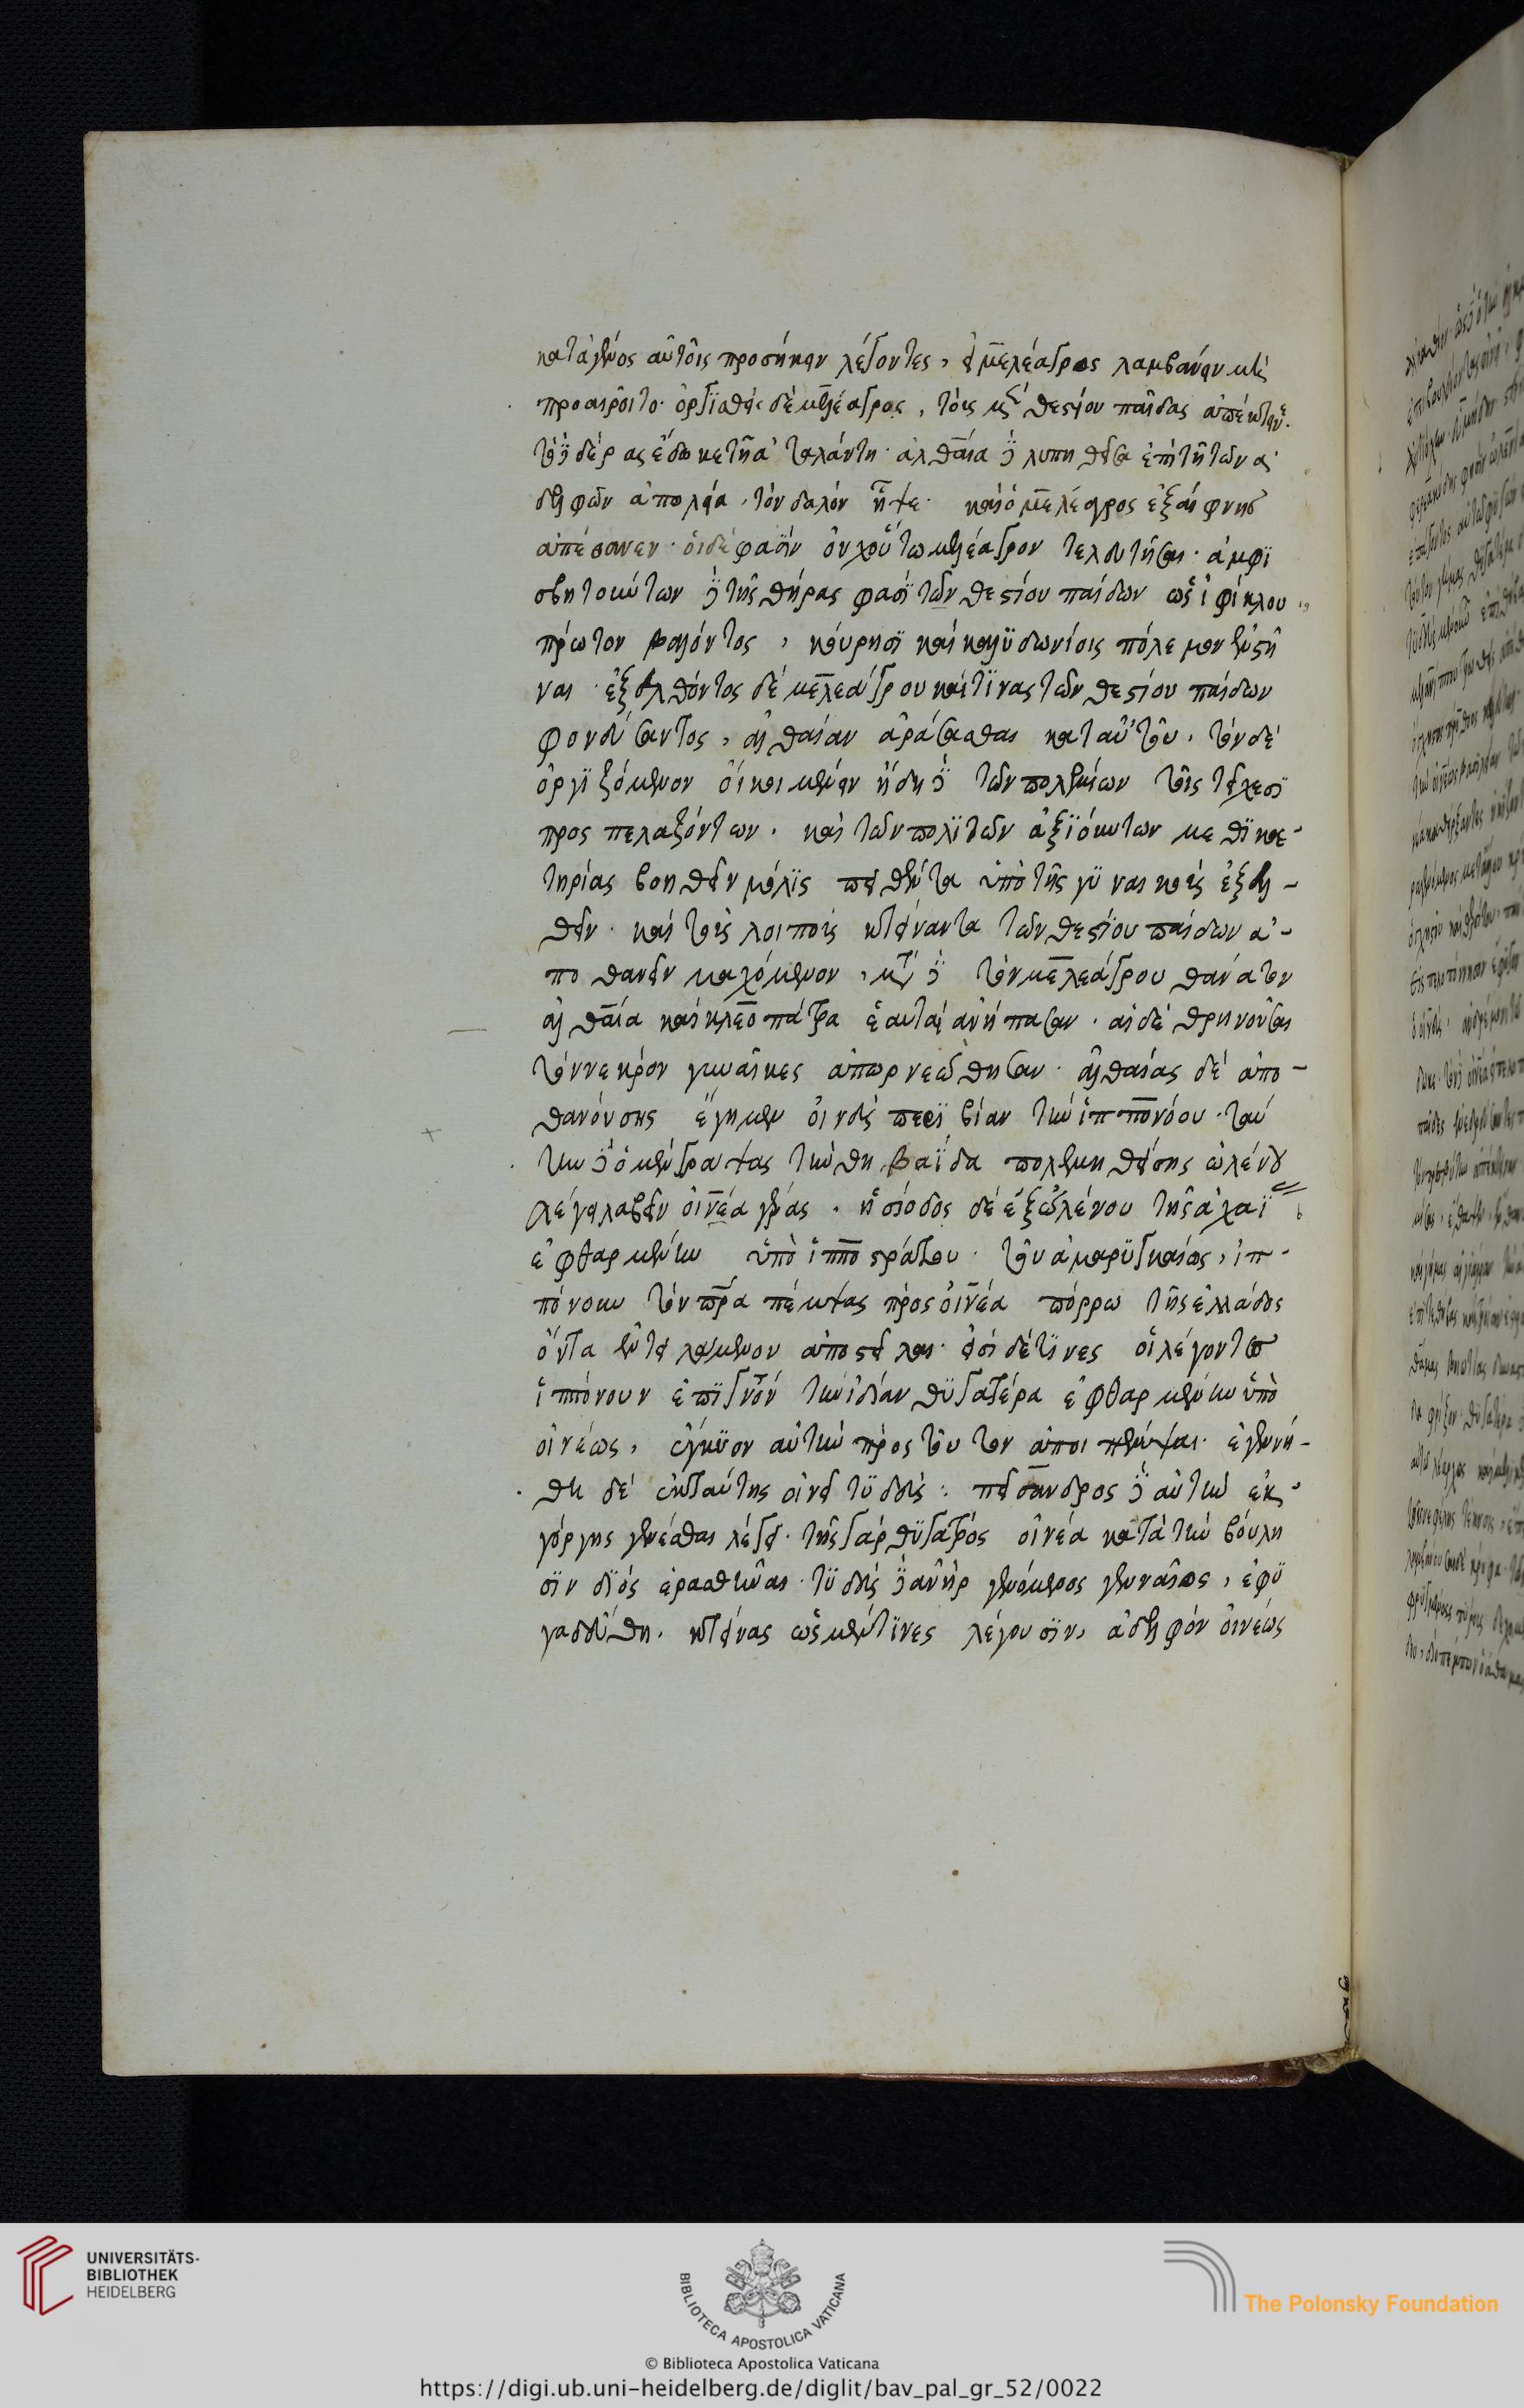 κατὰ γένος αὐτοῖς προσήκειν λέγοντες, εἰ μελέαγρος λαμβάνειν μὴ
προαιροῖτο. ὀργϊσθεὶς δὲ μελέαγρος, τοὺς μὲν θεστίου παῖδας ἀπέκτεινε.
τὸ δὲ δέρας ἔδωκε τῆ ἀταλάντη. ἀλθαία δὲ λυπηθεῖσα ἐπὶ τῆ τῶν ἀ
δελφῶν ἀπωλεία. τὸν δαλὸν ἧψε. καὶ ὁ μελέαγρος ἐξαίφνης
ἀπέθανεν. οἱ δέ φασϊν οὐχ οὕτω μελέαγρον τελευτῆσαι. ἀμφϊ
σβητούντων δὲ τῆς θήρας φασϊ τῶν θεστίου παίδων ὡς ἰφίκλου
πρώτου βαλόντος, κούρησϊ καὶ καλϋδωνίοις πόλεμον ἐνστῆ
ναι. ἐξελθόντος δὲ μελεάγρου καί τϊνας τῶν θεστίου παίδων
φονεύσαντος, ἀλθαίαν ἀράσασθαι κατ αὐτοῦ. τὸν δὲ
ὀργϊζόμενον οἴκοι μένειν ἤδη δὲ τῶν πολεμίων τοῖς τείχεσϊ
προσπελαζόντων. καὶ τῶν πολϊτῶν ἀξϊούντων μεθ ϊκε-
τηρίας βοηθεῖν μόλϊς πεισθέντα ὑπὸ τῆς γϋναικὸς ἐξελ-
θεῖν. καὶ τοὺς λοιποὺς κτείναντα τῶν θεστίου παίδων ἀ-
ποθανεῖν μαχόμενον, μετὰ δὲ τὸν μελεάγρου θάνατον
ἀλθαία καὶ κλεοπάτρα ἑαυτὰς ἀνήρτησαν. αἱ δὲ θρηνοῦσαι
τὸν νεκρὸν γυναῖκες ἀπωρνεώθησαν. ἀλθαίας δὲ ἀπο-
θανούσης ἔγημεν οἰνεὺς περϊβίαν τὴν ἱππονόου. ταύ
την δὲ ὁ μὲν γράψας τὴν θηβαΐδα πολεμηθείσης ὠλένου
λέγει λαβεῖν οἰνέα γέρας. ἡσίοδος δὲ ἐξ ὠλένου τῆς ἀχαΐ
ἐφθαρμένην ὑπὸ ἱπποστράτου. τοῦ ἀμαρϋγκαίως, ἱπ-
πόνουν τὸν πατέρα πέμψας πρὸς οἰνέα πόρρω τῆς ἑλλάδος
ὄντα ἐντειλάμενον ἀποστεῖλαι. εἰσὶ δέ τϊνες οἱ λέγοντες
ἱππόνουν ἐπϊγνόντα τὴν ἰδίαν θϋγατέρα ἐφθαρμένην ὑπὸ
οἰνέως, ἔγκϋον αὐτὴν πρὸς τοῦτον ἀποπέμψαι. ἐγεννή-
θη δὲ ἐκ ταύτης οἰνεῖ τϋδεύς. πείσανδρος δὲ αὐτὴν ἐκ
γόργης γενέσθαι λέγει. τῆς γὰρ θϋγατρὸς οἰνέα κατὰ τὴν βούλη
σϊν δϊὸς ἐρασθῆναι. τϋδεὺς δὲ ἀνὴρ γενόμενος γενναῖος, ἐφϋ
γαδεύθη. κτείνας ὡς μέν τϊνες λέγουσϊν, ἀδελφὸν οἰνέως
UNIVERSITÄTS-
BIBLIOTHEK
HEIDELBERG
BIBLIOTECA APOSTOLICA VATICANA
© Biblioteca Apostolica Vaticana
The Polonsky Foundation
https://digi.ub.uni-heidelberg.de/diglit/bav_pal_gr_52/0022